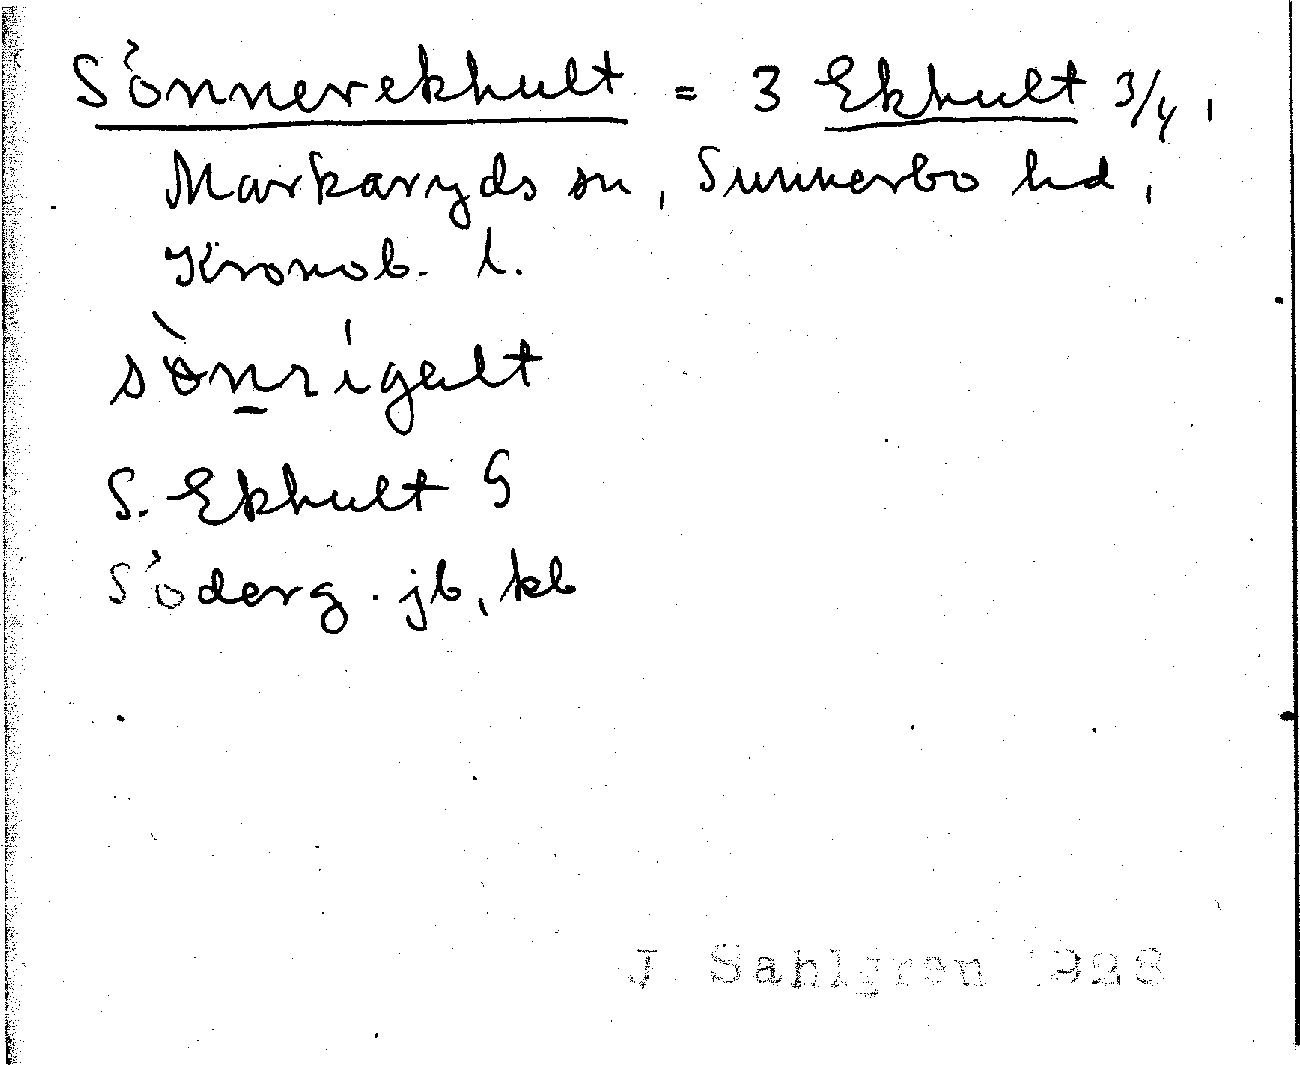 Sönnerekhult = 3 Ekhult 3/4,
Markaryds sn, Sunnerbo hd,
Kronob. l.
sò̱nrigalt
S. Ekhult G
Söderg. jb, kb
J Sahlgren 1928